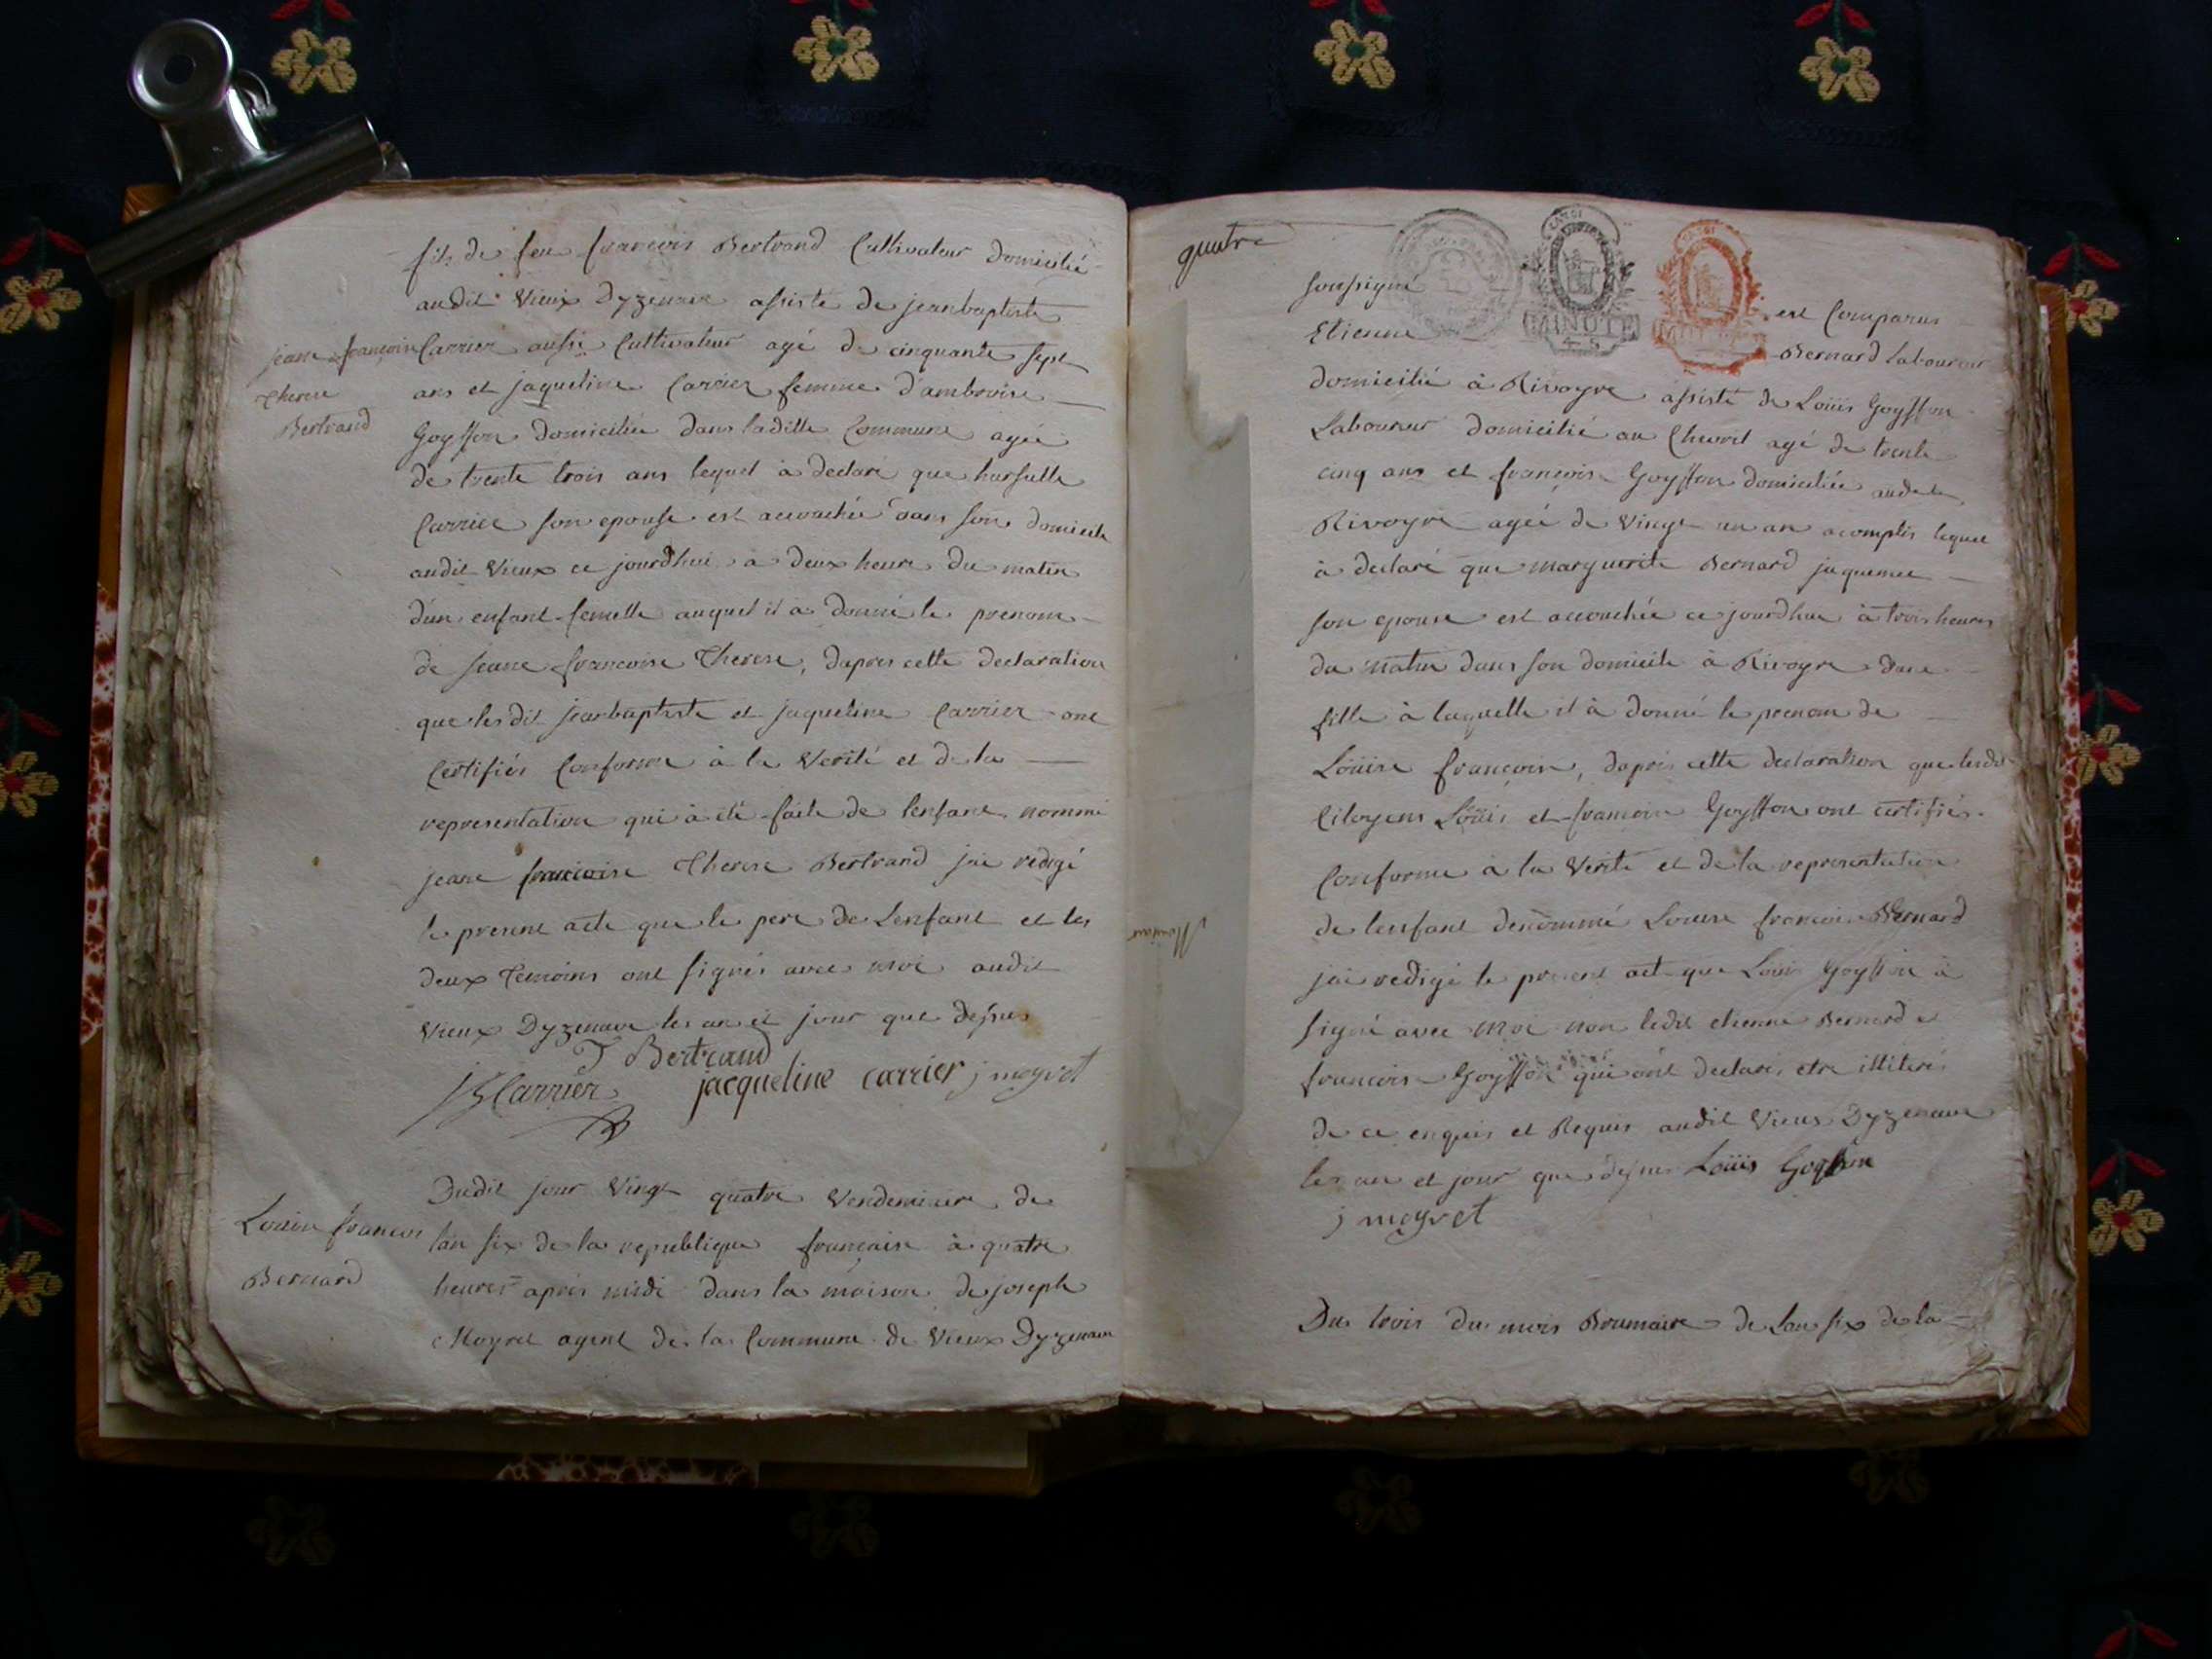 fils de feu francois Bertrand Cultivateur domicilié
audit Vieux Dyzenave assisté de jeanbaptiste
jeane francoise
Therese
Bertrand
Carrier aussi Cultivateur agé de cinquante sept
ans et jaqueline Carrier femme d'ambroise
Goyffon domiciliée dans ladille Commune agée
de trente trois ans lequel à declaré que
Carrier son epouse est accouchée dans son domicile
audit Vieux ce jourdhui à deux heure du matin
dun enfant femelle auquel il a donné le prenom
de jeane francoise Therese, dapres cette declaration
que lesdit jeanbaptiste et jaqueline Carrier ont
Certifiés Conforme à la Verité et de la
representation qui à été faite de lenfant nommé
jeane francoise Therese Bertrand jai redigé
le present acte que le pere de Lenfant et les
deux Temoins ont signés avec moi audit
Vieux Dyzenave les an et jour que dessus
J Bertrand
JB Carrier jacqueline carrier j meyret
Louise francois
Bernard
Dudit jour Vingt quatre Vendemiaire de
lan six de la republique francaise à quatre
heures apres midi dans la maison de joseph
Meyret agent de la Commune de Vieux Dyzenave
quatre
soussigné est Comparus
Etienne Bernard Laboureur
MINUTE
domicilié à Rivoyre assisté de Louis Goyffon
Laboureur domicilié au agé de trente
cinq ans et francoise Goyffon domiciliée audit
Rivoyre agée de Vingt un an acomplis lequel
à declaré que marguerite Bernard jaquemet
son epouse est accouchée ce jourdhui à trois heures
du matin dans son domicile à Rivoyre dune
fille à laquelle il à donné le prenom de
Louise francoise, dapres cette declaration que lesdit
Citoyens Louis et francoise Goyffon ont certifiés
Conforme à la Verité et de la representation
de lenfant denommé Louise francoise Bernard
jai redigé le present act que Louis Goyffon à
signé avec moi non ledit etienne Bernard e
francoise Goyffon qui ont declarés etre illiterés
de ce enquis et Requis audit Vieux Dyzenave
les an et jour que dessus Louis Goyffon
j meyret
Du trois du mois Brumaire de Lan six de la